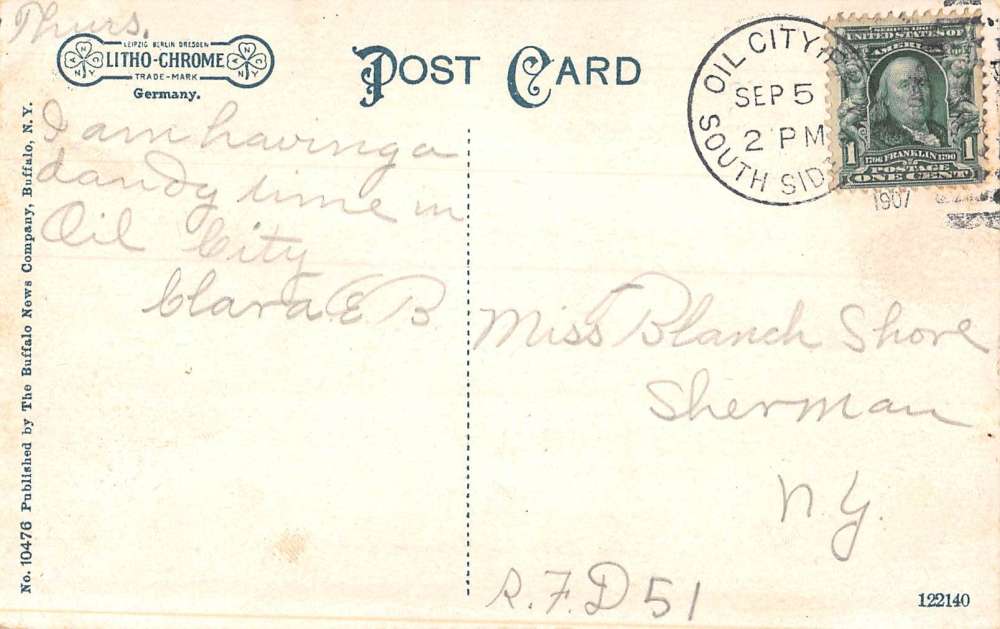 Thurs.
LEIPZIG BERLIN DRESDEN
LITHO-CHROME
TRADE-MARK
Germany.
POST CARD
OIL CITY, PA.
SEP 5
2 PM
1907
SOUTH SIDE
SERIES 1902
UNITED STATES OF
AMERICA
1706 FRANKLIN 1790
1 POSTAGE 1
ONE CENT
I am having a
dandy time in
Oil City
Clara E B
Miss Blanch Shore
Sherman
N.Y.
R.F.D 51
No. 10476 Published by The Buffalo News Company, Buffalo, N. Y.
122140